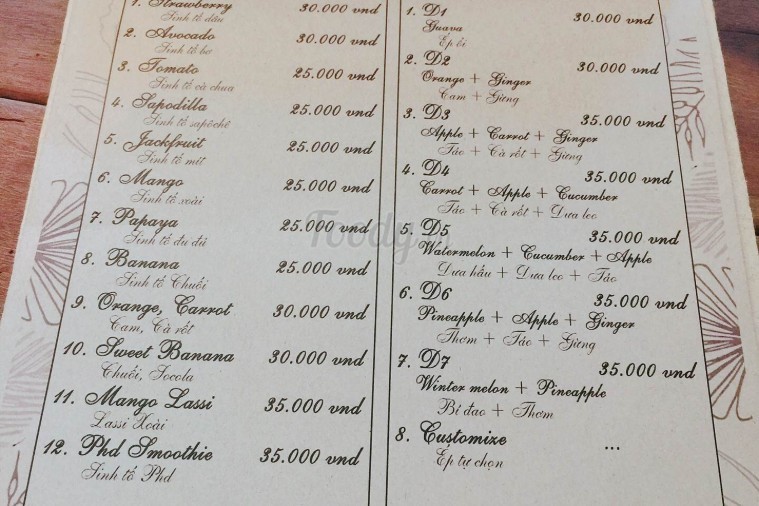 1. Strawberry 30.000 vnd
Sinh tố dâu
2. Avocado 30.000 vnd
Sinh tố bơ
3. Tomato 25.000 vnd
Sinh tố cà chua
4. Sapodilla 25.000 vnd
Sinh tố sapôchê
5. Jackfruit 25.000 vnd
Sinh tố mít
6. Mango 25.000 vnd
Sinh tố xoài
7. Papaya 25.000 vnd
Sinh tố đu đủ
8. Banana 25.000 vnd
Sinh tố Chuối
9. Orange, Carrot 30.000 vnd
Cam, Cà rốt
10. Sweet Banana 30.000 vnd
Chuối, Socola
11. Mango Lassi 35.000 vnd
Lassi Xoài
12. Phd Smoothie 35.000 vnd
Sinh tố Phd
1. D1 30.000 vnd
Guava
Ép ổi
2. D2 30.000 vnd
Orange + Ginger
Cam + Gừng
3. D3 35.000 vnd
Apple + Carrot + Ginger
Táo + Cà rốt + Gừng
4. D4 35.000 vnd
Carrot + Apple + Cucumber
Táo + Cà rốt + Dưa leo
5. D5 35.000 vnd
Watermelon + Cucumber + Apple
Dưa hấu + Dưa leo + Táo
6. D6 35.000 vnd
Pineapple + Apple + Ginger
Thơm + Táo + Gừng
7. D7 35.000 vnd
Winter melon + Pineapple
Bí đao + Thơm
8. Customize ...
Ép tự chọn